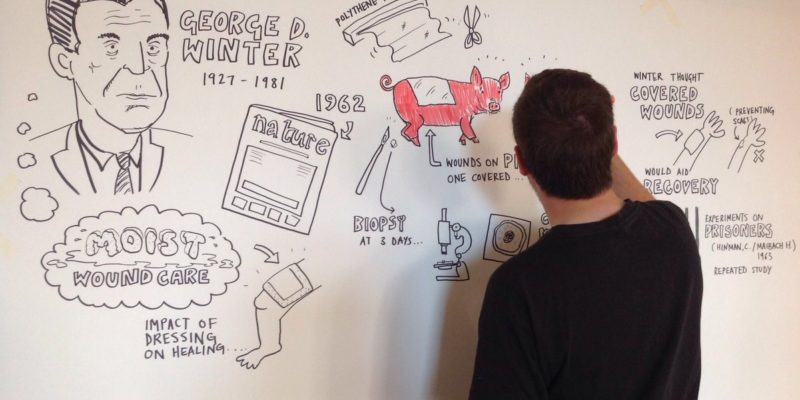 GEORGE D.
WINTER
1927 - 1981
MOIST
WOUND CARE
IMPACT OF
DRESSING
ON HEALING....
1962
nature
POLYTHENE
WOUNDS ON
ONE COVERED...
BIOPSY
AT 3 DAYS...
WINTER THOUGHT
COVERED
WOUNDS
(PREVENTING
SCABS)
WOULD AID
RECOVERY
EXPERIMENTS ON
PRISONERS
(HINMAN, C. / MAIBACH H)
1963
REPEATED STUDY